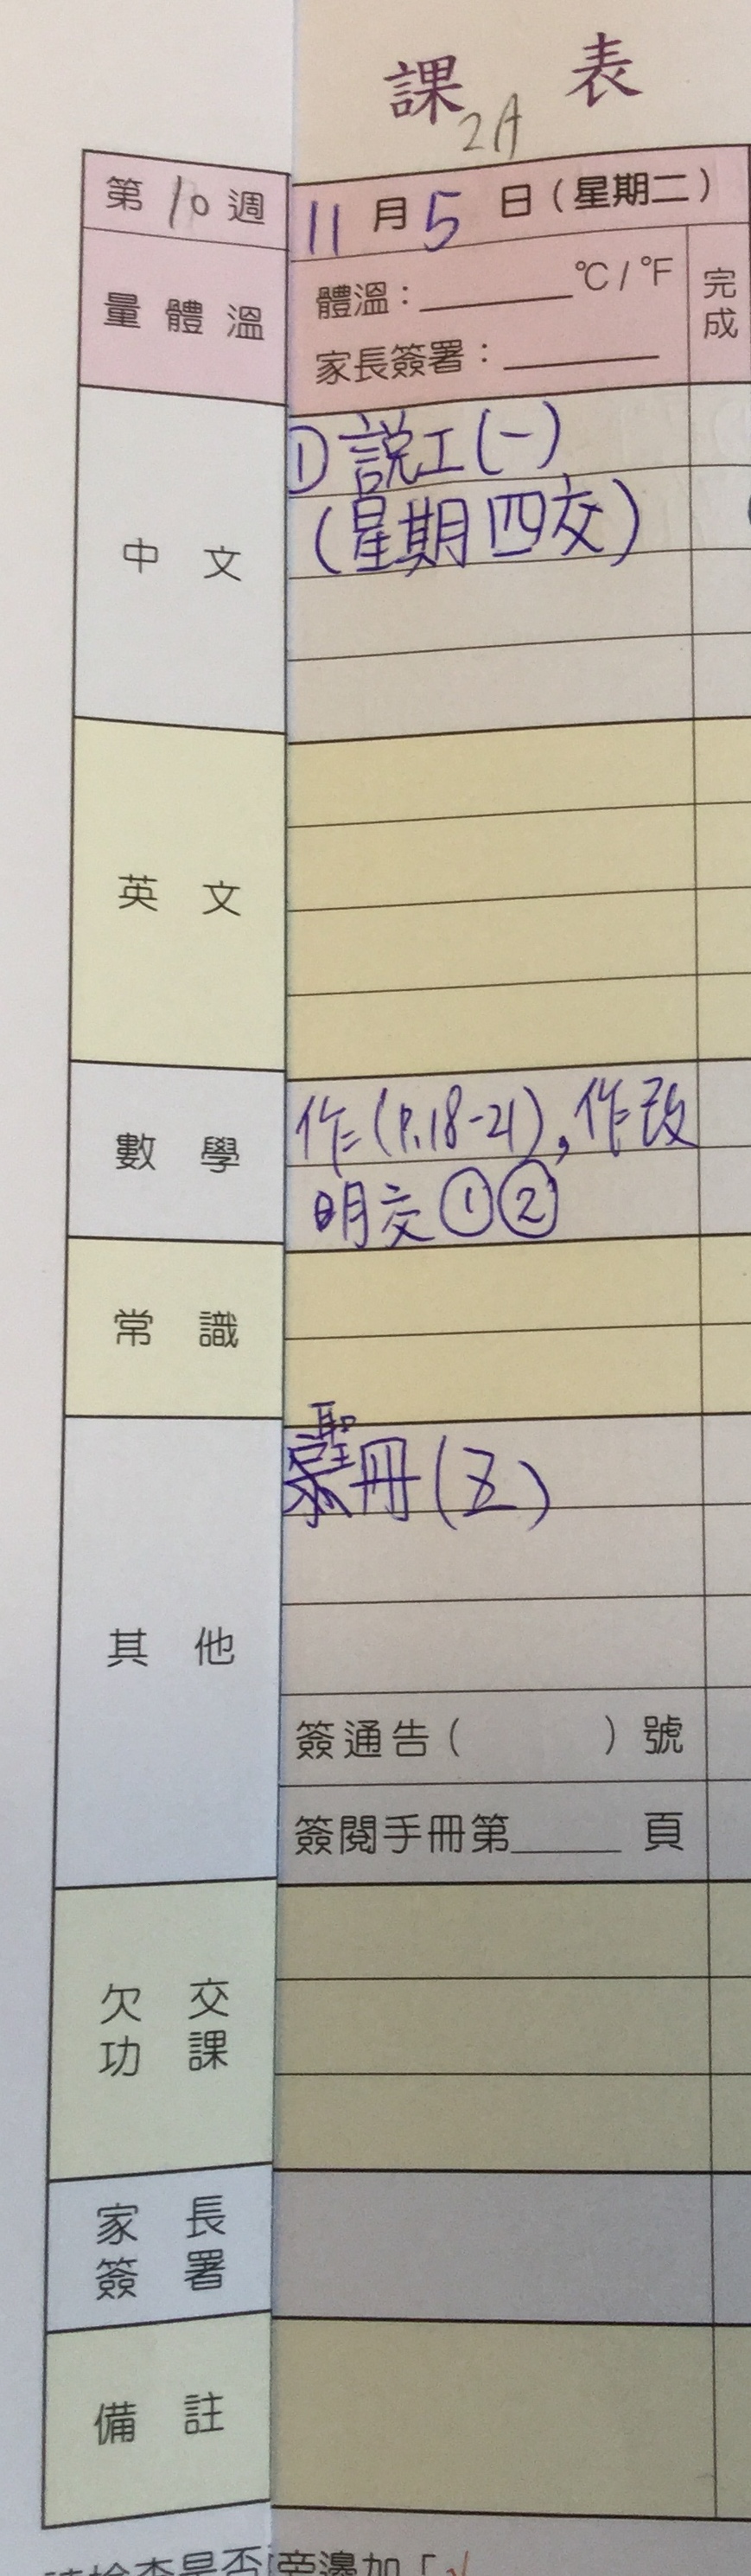 課 表
2A
第10週
11月5日(星期二)
量體溫
體溫:______℃/℉
家長簽署:______
完成
中文
①說工(一)
(星期四交)
英文
數學
作(P.18-21),作改
明交①②
常識
其他
聖
冊(Z)
簽通告( )號
簽閱手冊第_____頁
欠交
功課
家長
簽署
備註
檢查是否 旁邊加「√